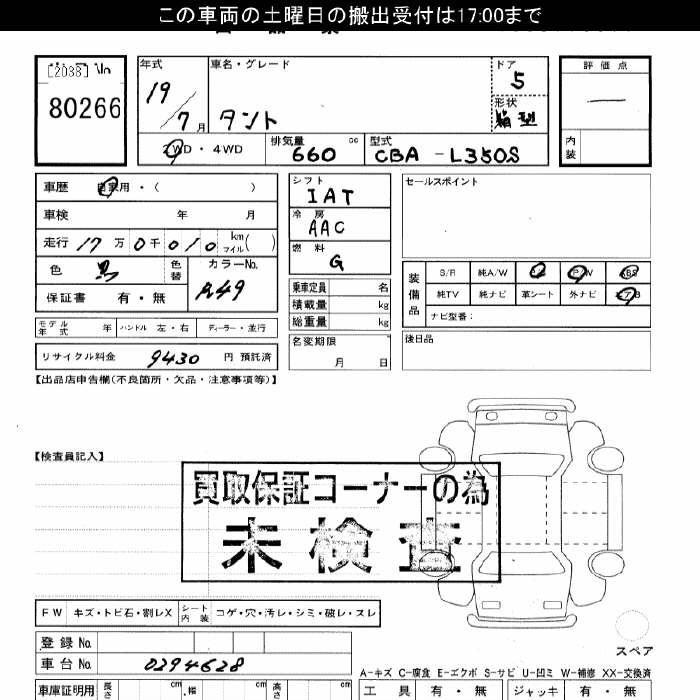 この車両の土曜日の搬出受付は17:00まで
[2038]
80266
年式 19/7月
車名・グレード タント
ドア 5
形状 箱型
評価点 —
内装
2WD・4WD
排気量 660 cc
型式 CBA-L350S
車歴 自家用・( )
車検 年 月
走行 17万0千010 km マイル( )
色 黒 色替 カラーNo. A49
保証書 有・無
モデル年式 年 ハンドル 左・右 ディーラー・並行
リサイクル料金 9430 円 預託済
シフト IAT
冷房 AAC
燃料 G
乗車定員 名
積載量 kg
総重量 kg
名変期限 月 日
セールスポイント
装備品 S/R 純A/W P/S P/W ABS
純TV 純ナビ 革シート 外ナビ エアB
ナビ型番:
後日品
【出品店申告欄(不良箇所・欠品・注意事項等)】
【検査員記入】
買取保証コーナーの為
未検査
FW キズ・トビ石・割レX シート内装 コゲ・穴・汚レ・シミ・破レ・スレ
登録No.
車台No. 0294628
スペア
A-キズ C-腐食 E-エクボ S-サビ U-凹ミ W-補修 XX-交換済
車庫証明用 長さ cm 幅 cm 高さ cm
工具 有・無 ジャッキ 有・無